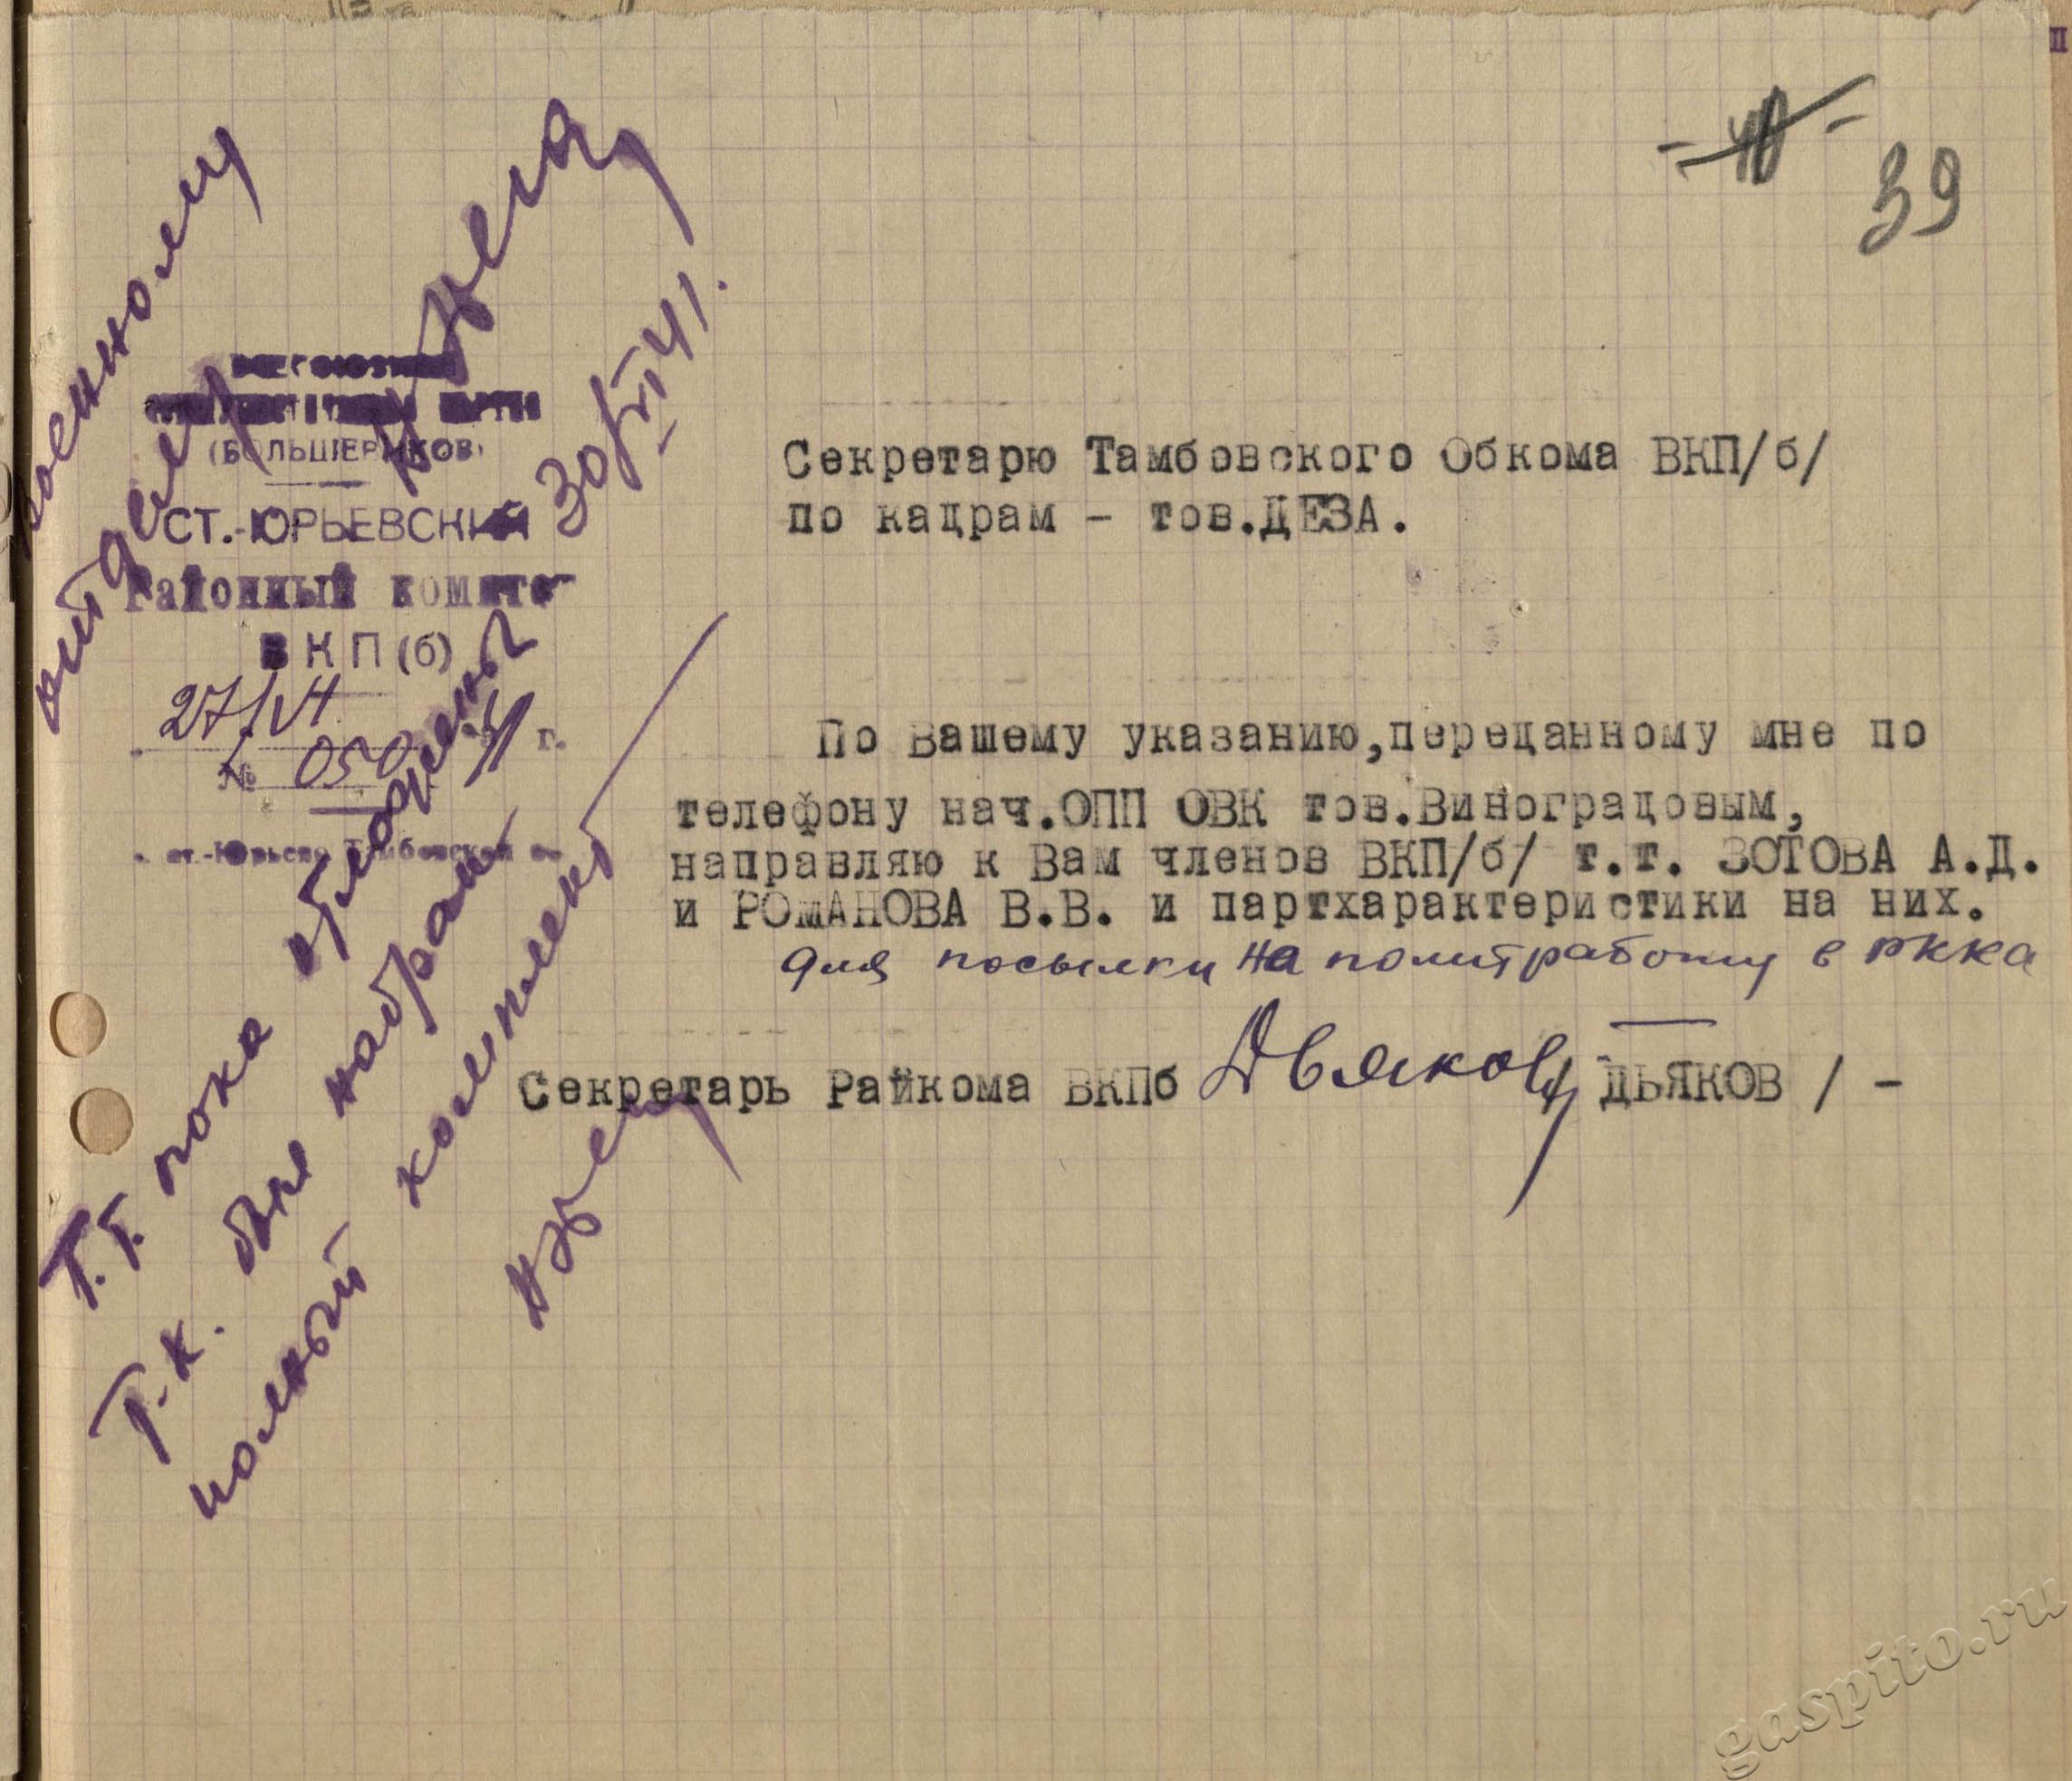 - 40 -
39
военному
отделу
30/VI 41.
ВСЕСОЮЗНАЯ
КОММУНИСТИЧЕСКАЯ ПАРТИЯ
(БОЛЬШЕВИКОВ)
СТ.-ЮРЬЕВСКИЙ
Районный комитет
ВКП(б)
27/VI 41 г.
№ 050
Секретарю Тамбовского Обкома ВКП/б/
по кадрам - тов.ДЕЗА.
По Вашему указанию,переданному мне по
телефону нач.ОПП ОВК тов.Виноградовым,
направляю к Вам членов ВКП/б/ т.т. ЗОТОВА А.Д.
и РОМАНОВА В.В. и партхарактеристики на них.
для посылки на политработу в РККА
Секретарь Райкома ВКПб Дьяков / ДЬЯКОВ / -
Т.т. пока
т.к. набран
полный комплект
gaspito.ru